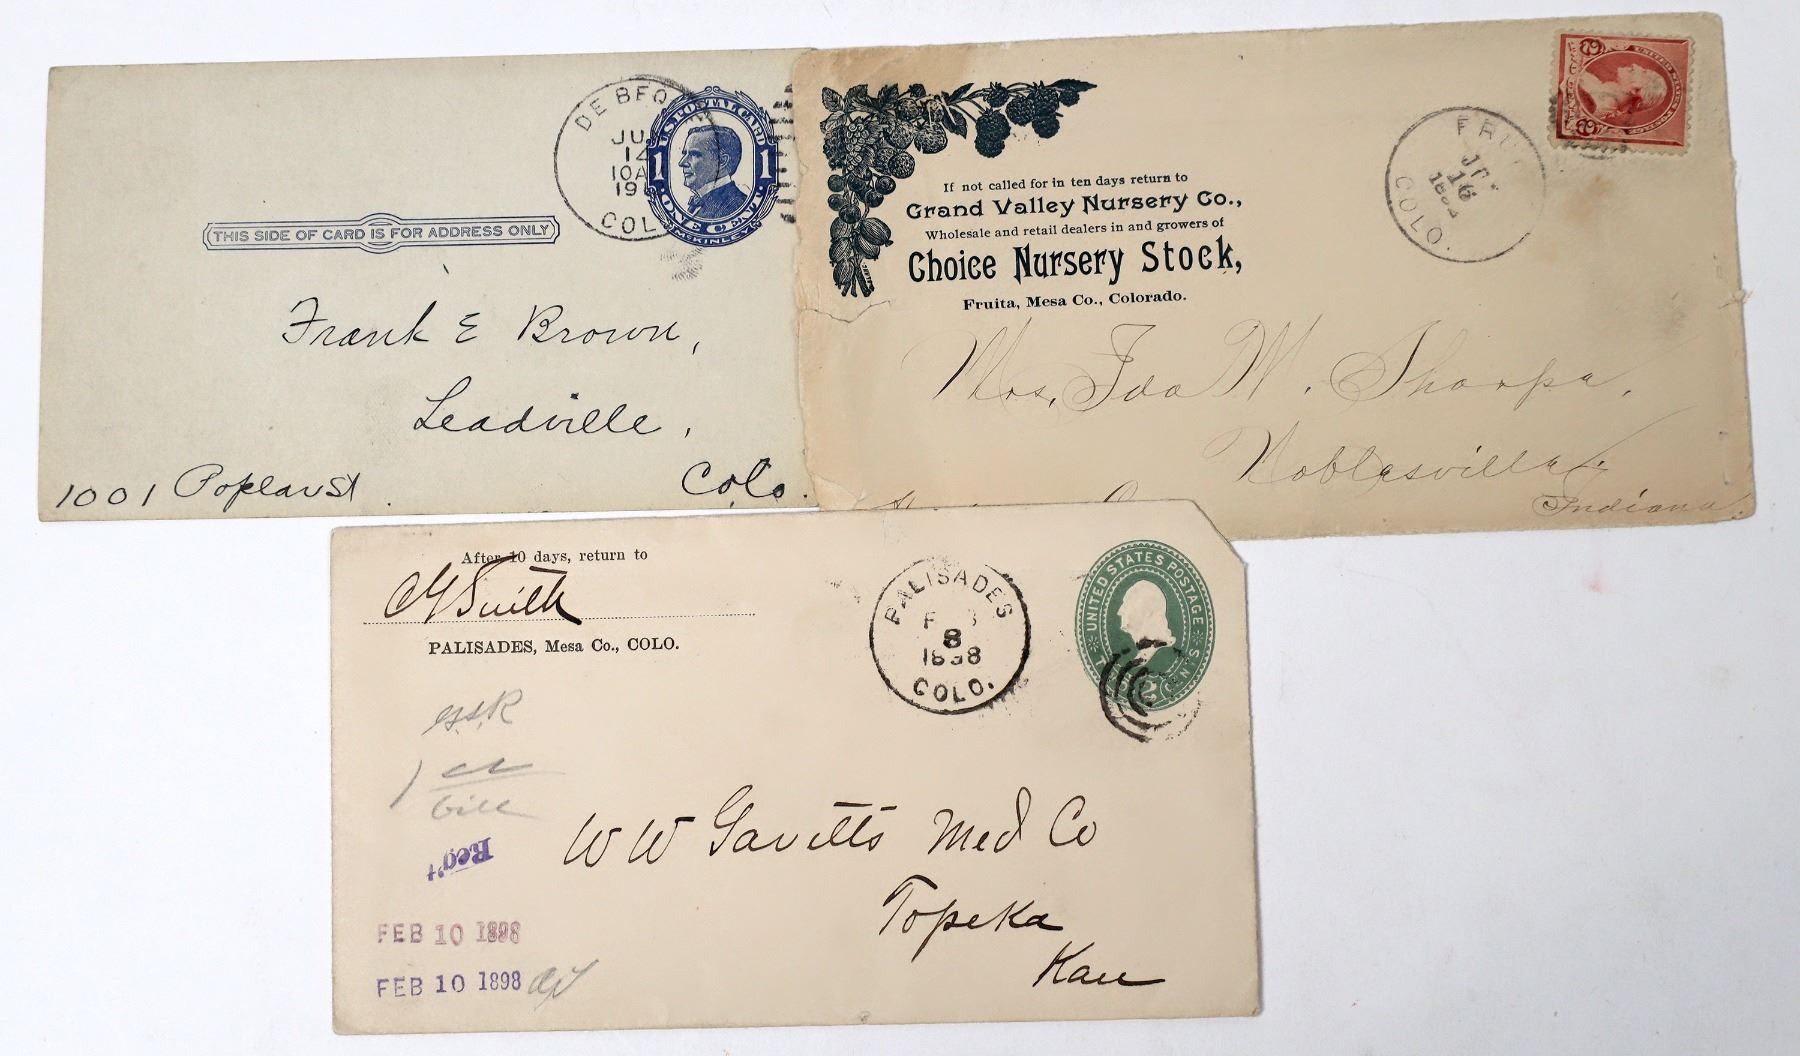 DE BEQ
JU
14
10A
19
COL
U.S. POSTAL CARD
1 1
ONE CENT
McKINLEY
THIS SIDE OF CARD IS FOR ADDRESS ONLY
Frank E Brown,
Leadville,
1001 Poplar St. Colo.
If not called for in ten days return to
Grand Valley Nursery Co.,
Wholesale and retail dealers in and growers of
Choice Nursery Stock,
Fruita, Mesa Co., Colorado.
FRU
16
COLO.
UNITED STATES POSTAGE
2 2
Mrs, Ida M. Sharpe,
Noblesville,
Indiana
After 10 days, return to
Smith
PALISADES, Mesa Co., COLO.
PALISADES
8
1898
COLO.
UNITED STATES POSTAGE
2 CENTS
1
bill
Rec't
FEB 10 1898
FEB 10 1898
W W Gavitts Med Co
Topeka
Kan